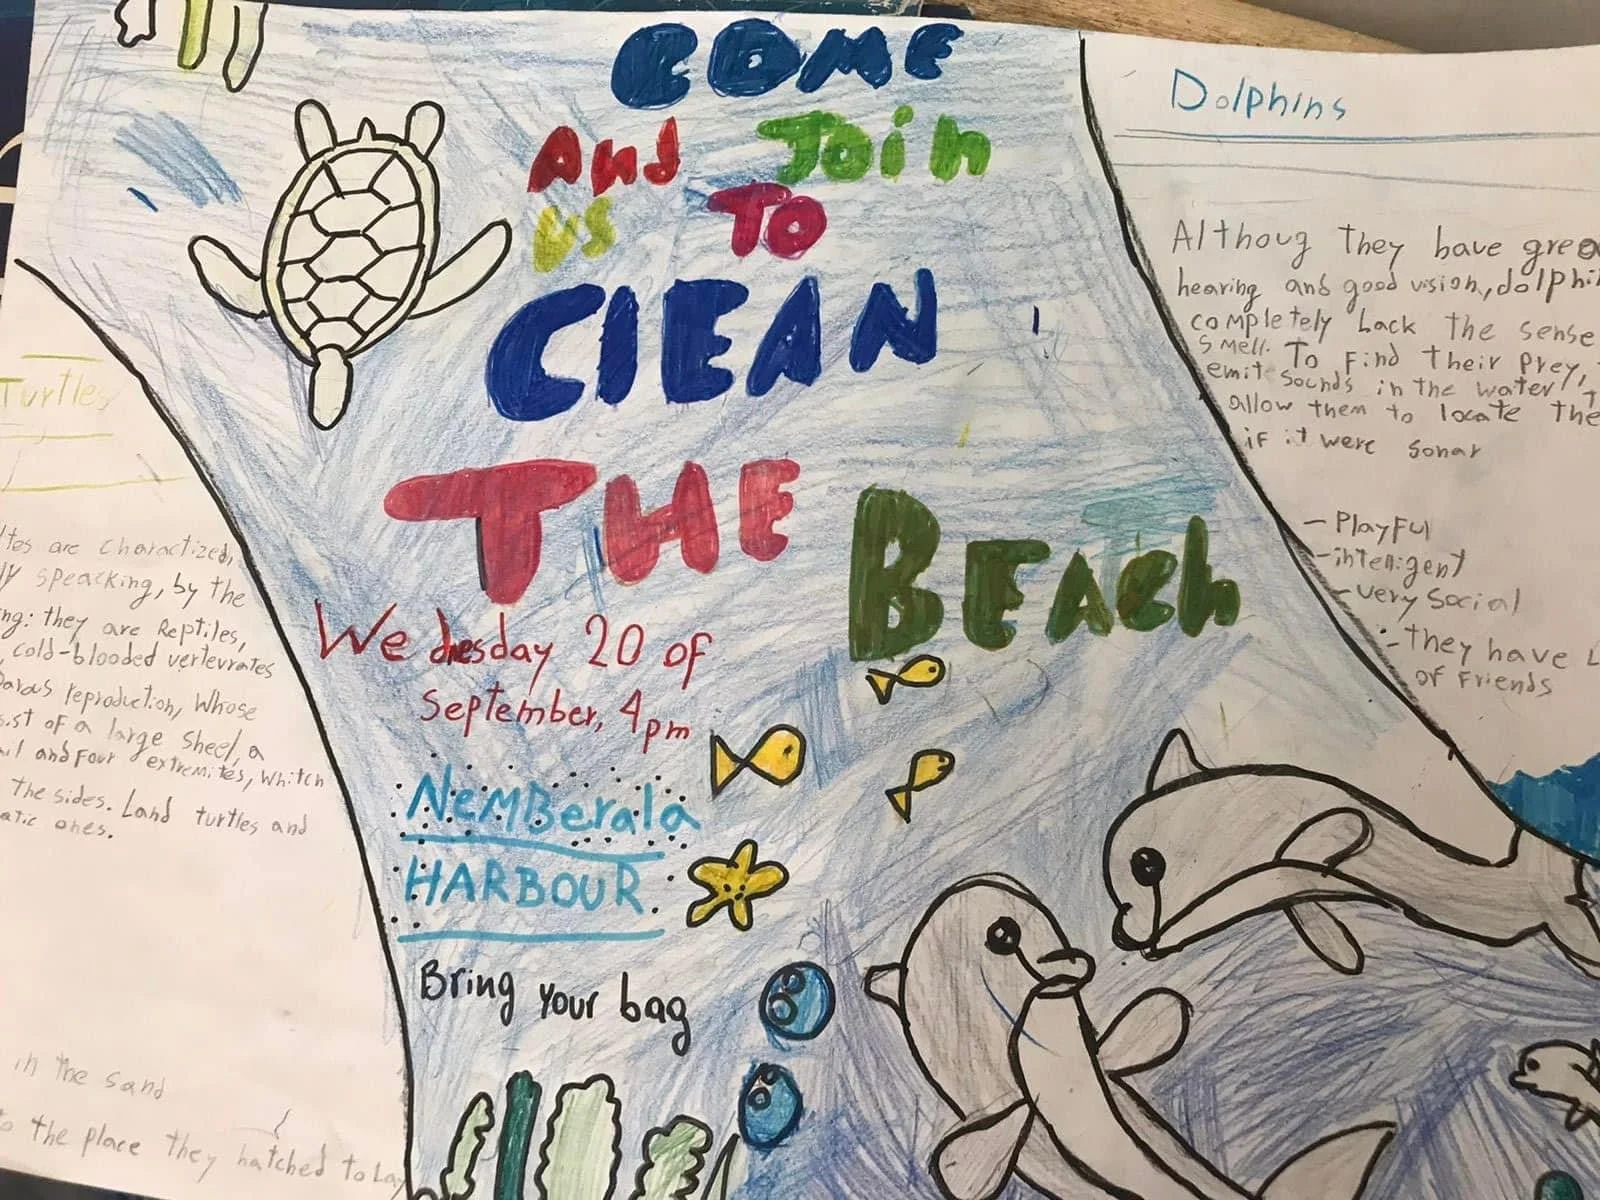 COME
And Join
us To
ClEAN
THE
BEACh
Wednesday 20 of
September, 4pm
NeMBerala
HARBOUR
Bring your bag
Turtles
are charactized,
speacking, by the
they are Reptiles,
cold-blooded vertevrates
reproduction, Whose
of a large sheel, a
and Four extremites, Whitch
the sides. Land turtles and
ones.
in the sand
the place they hatched to
Dolphins
Althoug they have
hearing and good vision,
completely Lack the sense
smell. To Find their prey,
emit sounds in the water,
allow them to locate
if it were sonar
- Playful
- intelligent
- very social
- they have
of Friends